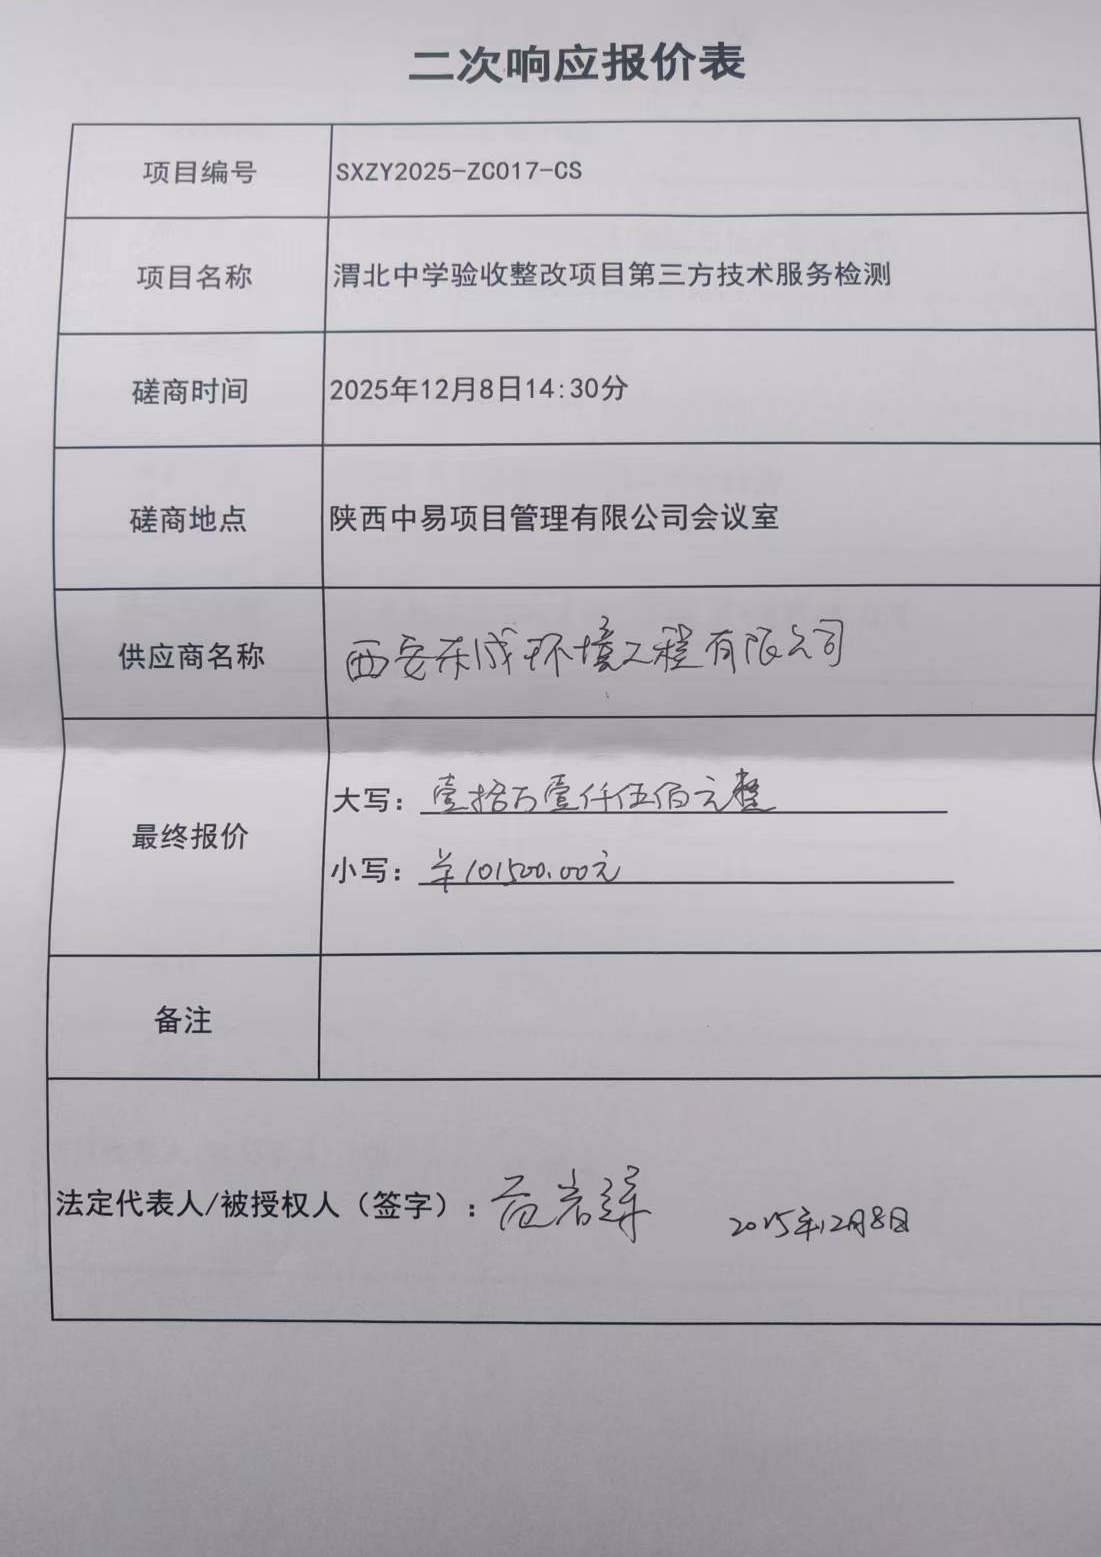 二次响应报价表
项目编号 SXZY2025-ZC017-CS
项目名称 渭北中学验收整改项目第三方技术服务检测
磋商时间 2025年12月8日14:30分
磋商地点 陕西中易项目管理有限公司会议室
供应商名称 西安东成环境工程有限公司
最终报价
大写：壹拾万壹仟伍佰元整
小写：￥101500.00元
备注
法定代表人/被授权人（签字）： 2025年12月8日